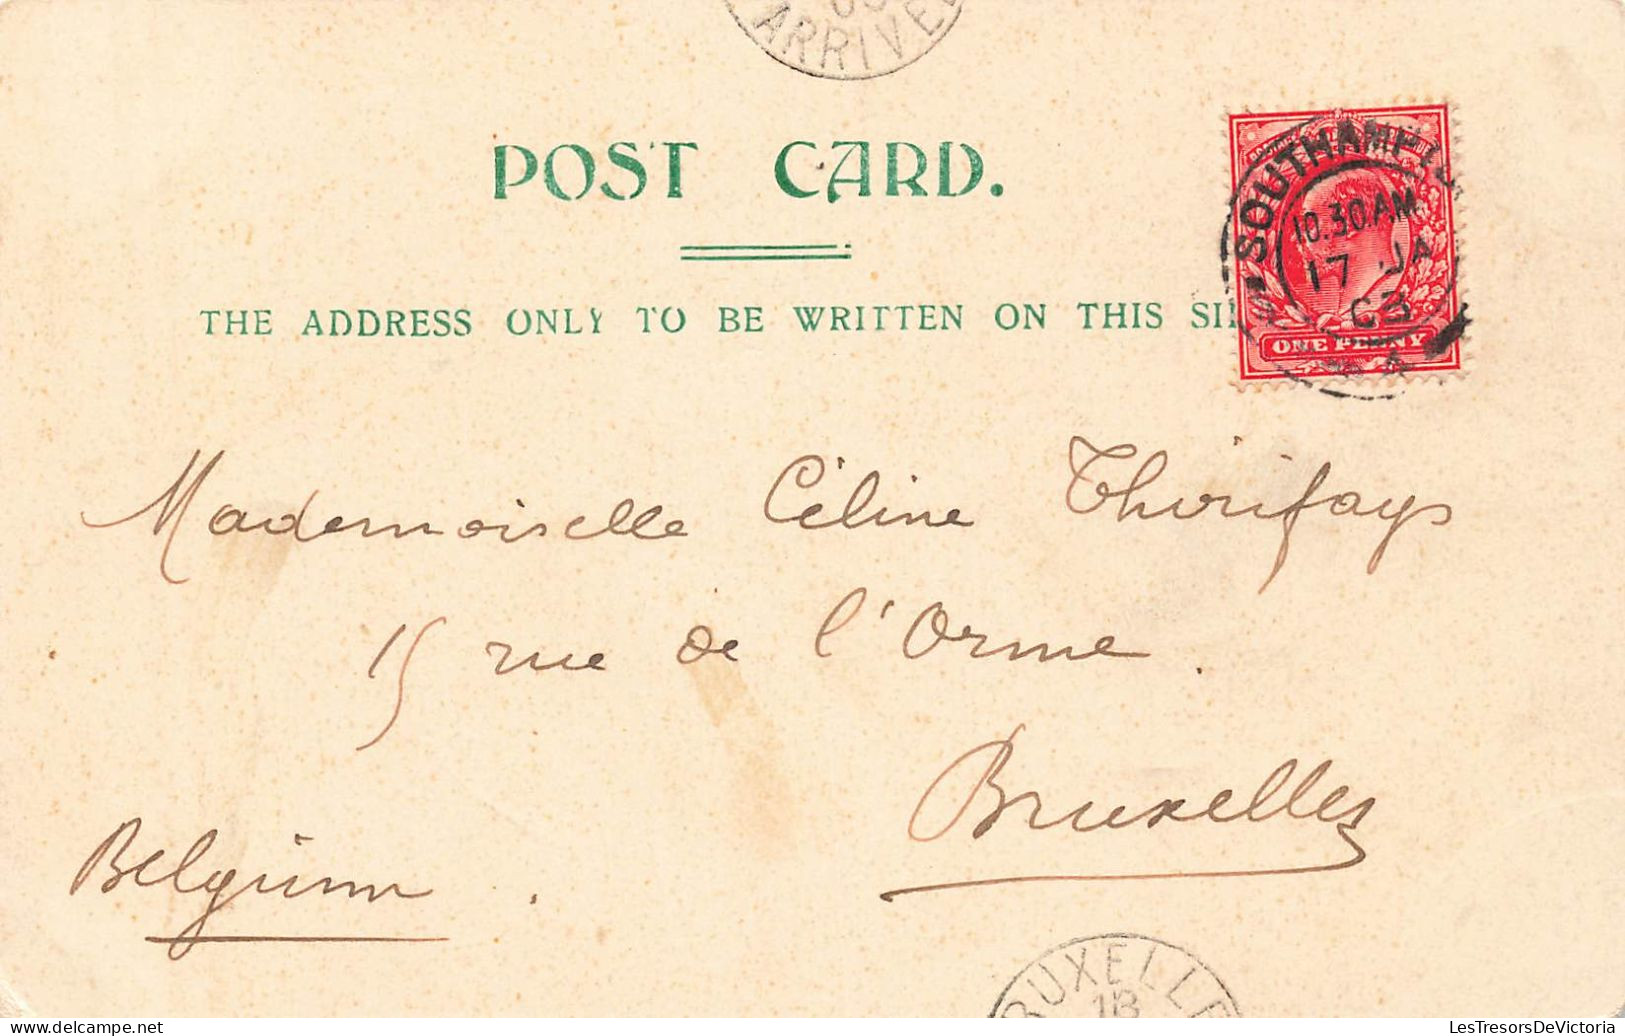 03
ARRIVE
POST CARD.
THE ADDRESS ONLY TO BE WRITTEN ON THIS SI
SOUTHAMPTO
10.30 AM
17 JA
03
ONE PENNY
Mademoiselle Céline Thirifays
15 rue de l'Orme.
Bruxelles
Belgium.
BRUXELLE
18
www.delcampe.net
LesTresorsDeVictoria